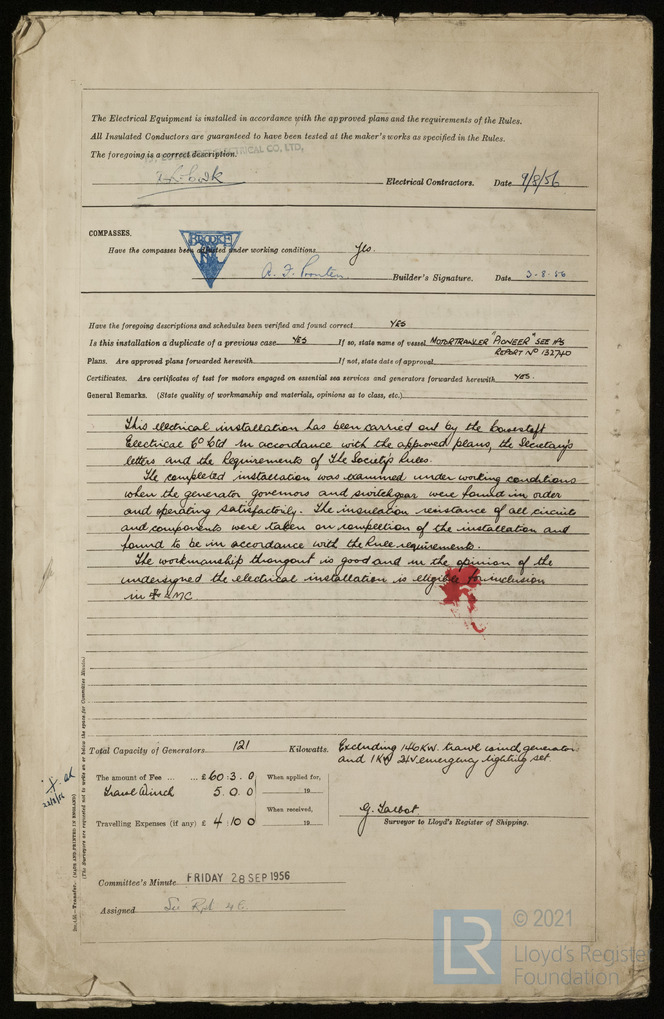 The Electrical Equipment is installed in accordance with the approved plans and the requirements of the Rules.
All Insulated Conductors are guaranteed to have been tested at the maker's works as specified in the Rules.
The foregoing is a correct description.
ELECTRICAL CO, LTD,
Electrical Contractors. Date 9/8/56
COMPASSES.
BROOKE
Have the compasses been adjusted under working conditions Yes.
Builder's Signature. Date 3-8-56
Have the foregoing descriptions and schedules been verified and found correct YES
Is this installation a duplicate of a previous case YES If so, state name of vessel MOTORTRAWLER "PIONEER" SEE
REPORT No 132740
Plans. Are approved plans forwarded herewith If not, state date of approval
Certificates. Are certificates of test for motors engaged on essential sea services and generators forwarded herewith YES.
General Remarks. (State quality of workmanship and materials, opinions as to class, etc.)
This electrical installation has been carried out by the Lowestoft
Electrical Co Ltd in accordance with the approved plans, the Secretary's
letters and the Requirements of The Society's Rules.
The completed installation was examined under working conditions
when the generator governors and switchgear were found in order
and operating satisfactorily. The insulation resistance of all circuits
and components were taken on completion of the installation and
found to be in accordance with the Rule requirements.
The workmanship througout is good and in the opinion of the
undersigned the electrical installation is eligible for inclusion
in LMC
Total Capacity of Generators 121 Kilowatts. Excluding 140KW. trawl winch generator
and 1KW 24V emergency lighting set.
The amount of Fee ... ... £60:3.0 When applied for,
Trawl Winch 5.0.0 19
When received,
Travelling Expenses (if any) £ 4:10 0 19
G. Talbot
Surveyor to Lloyd's Register of Shipping.
Committee's Minute FRIDAY 28 SEP 1956
Assigned See Rpt 4E.
Transfer. (MADE AND PRINTED IN ENGLAND)
(The Surveyors are requested not to write on or below the space for Committee Minute)
LR
© 2021
Lloyd's Register
Foundation